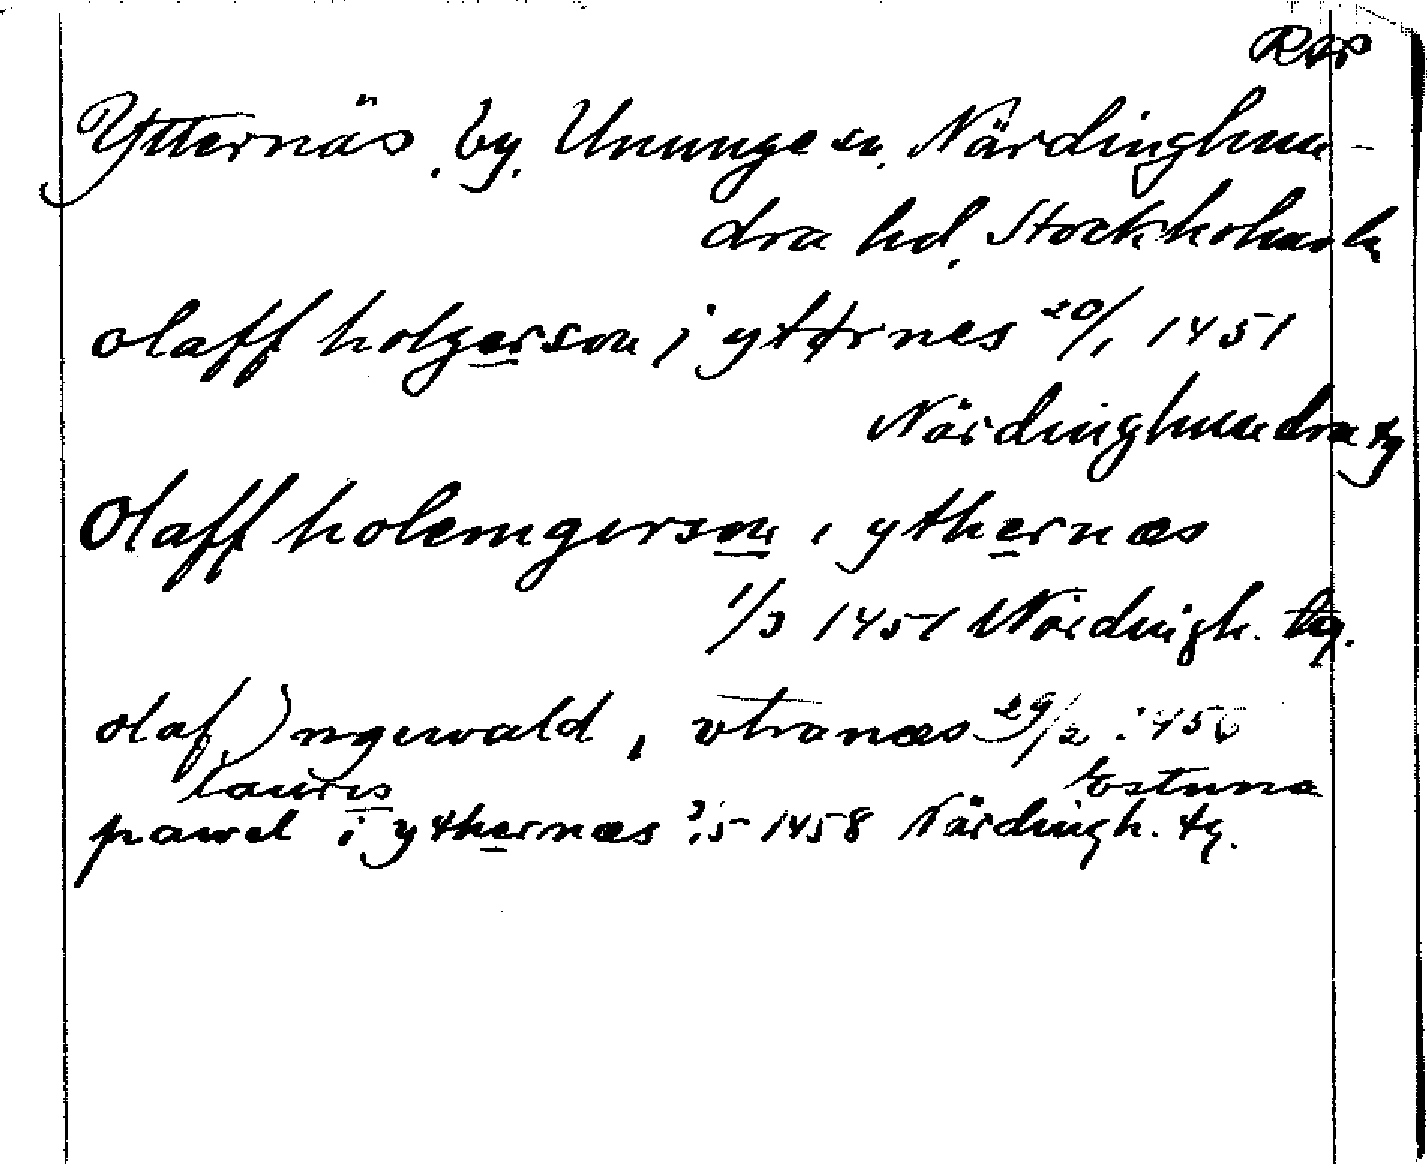 Rep
Ytternäs, by, Ununge sn, Närdinghun-
dra hd, Stockholms l.
olaff holgerson i ytternes 20/1 1451
Närdinghundra tg
Olaff holemgerson i ythernæs
1/3 1451 Närdingh. tg.
olaf Jngewald i vtranæs 29/2 1456
lauris Estuna
pawel i ythernæs 3/5 1458 Närdingh. tg.